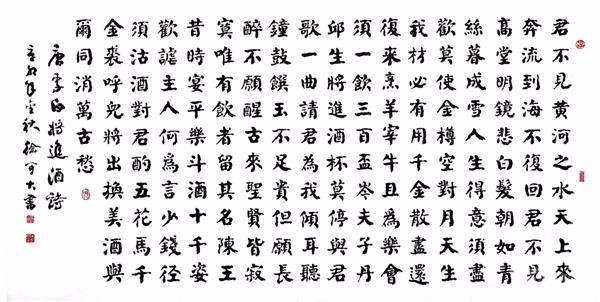 君不見黃河之水天上來
奔流到海不復回君不見
高堂明鏡悲白髮朝如青
絲暮成雪人生得意須盡
歡莫使金樽空對月天生
我材必有用千金散盡還
復來烹羊宰牛且為樂會
須一飲三百盃岑夫子丹
邱生將進酒杯莫停與君
歌一曲請君為我傾耳聽
鐘鼓饌玉不足貴但願長
醉不願醒古來聖賢皆寂
寞唯有飲者留其名陳王
昔時宴平樂斗酒十千姿
歡謔主人何為言少錢径
須沽酒對君酌五花馬千
金裘呼兒將出換美酒與
爾同消萬古愁
唐李白將進酒詩
年金秋徐可大書